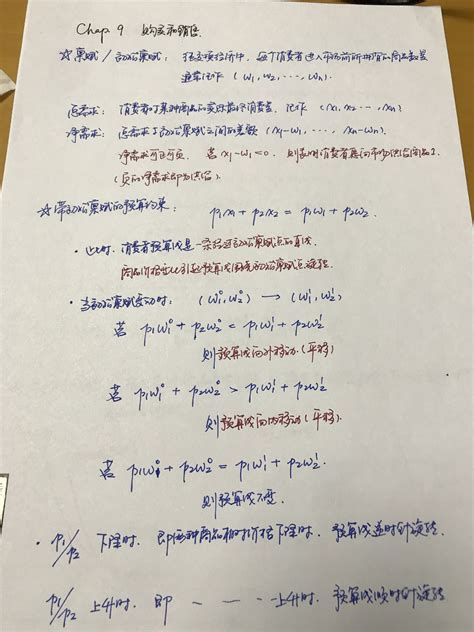 Chap 9 购买和销售
☆禀赋/初始禀赋: 纯交换经济中, 每个消费者进入市场前所拥有的商品数量
通常记作 (ω₁, ω₂, ···, ωₙ).
总需求: 消费者对某种商品的实际最终消费量, 记作 (x₁, x₂ ···, xₙ)
净需求: 总需求与初始禀赋之间的差数 (x₁-ω₁, ···, xₙ-ωₙ).
净需求可正可负. 若 x₁-ω₁<0, 则表明消费者愿向市场供给商品1
(负的净需求即为供给).
☆带初始禀赋的预算约束: p₁x₁ + p₂x₂ = p₁ω₁ + p₂ω₂.
· 此时, 消费者预算线是一条经过初始禀赋点的直线
商品价格变化引起预算线围绕初始禀赋点旋转.
· 当初始禀赋变动时: (ω₁⁰, ω₂⁰) → (ω₁¹, ω₂¹)
若 p₁ω₁⁰ + p₂ω₂⁰ < p₁ω₁¹ + p₂ω₂¹
则预算线向外移动 (平移)
若 p₁ω₁⁰ + p₂ω₂⁰ > p₁ω₁¹ + p₂ω₂¹
则预算线向内移动 (平移).
若 p₁ω₁⁰ + p₂ω₂⁰ = p₁ω₁¹ + p₂ω₂¹.
则预算线不变.
· p₁/p₂ 下降时, 即 商品相对价格下降时, 预算线逆时针旋转
p₁/p₂ 上升时, 即 — — — 上升时, 预算线顺时针旋转